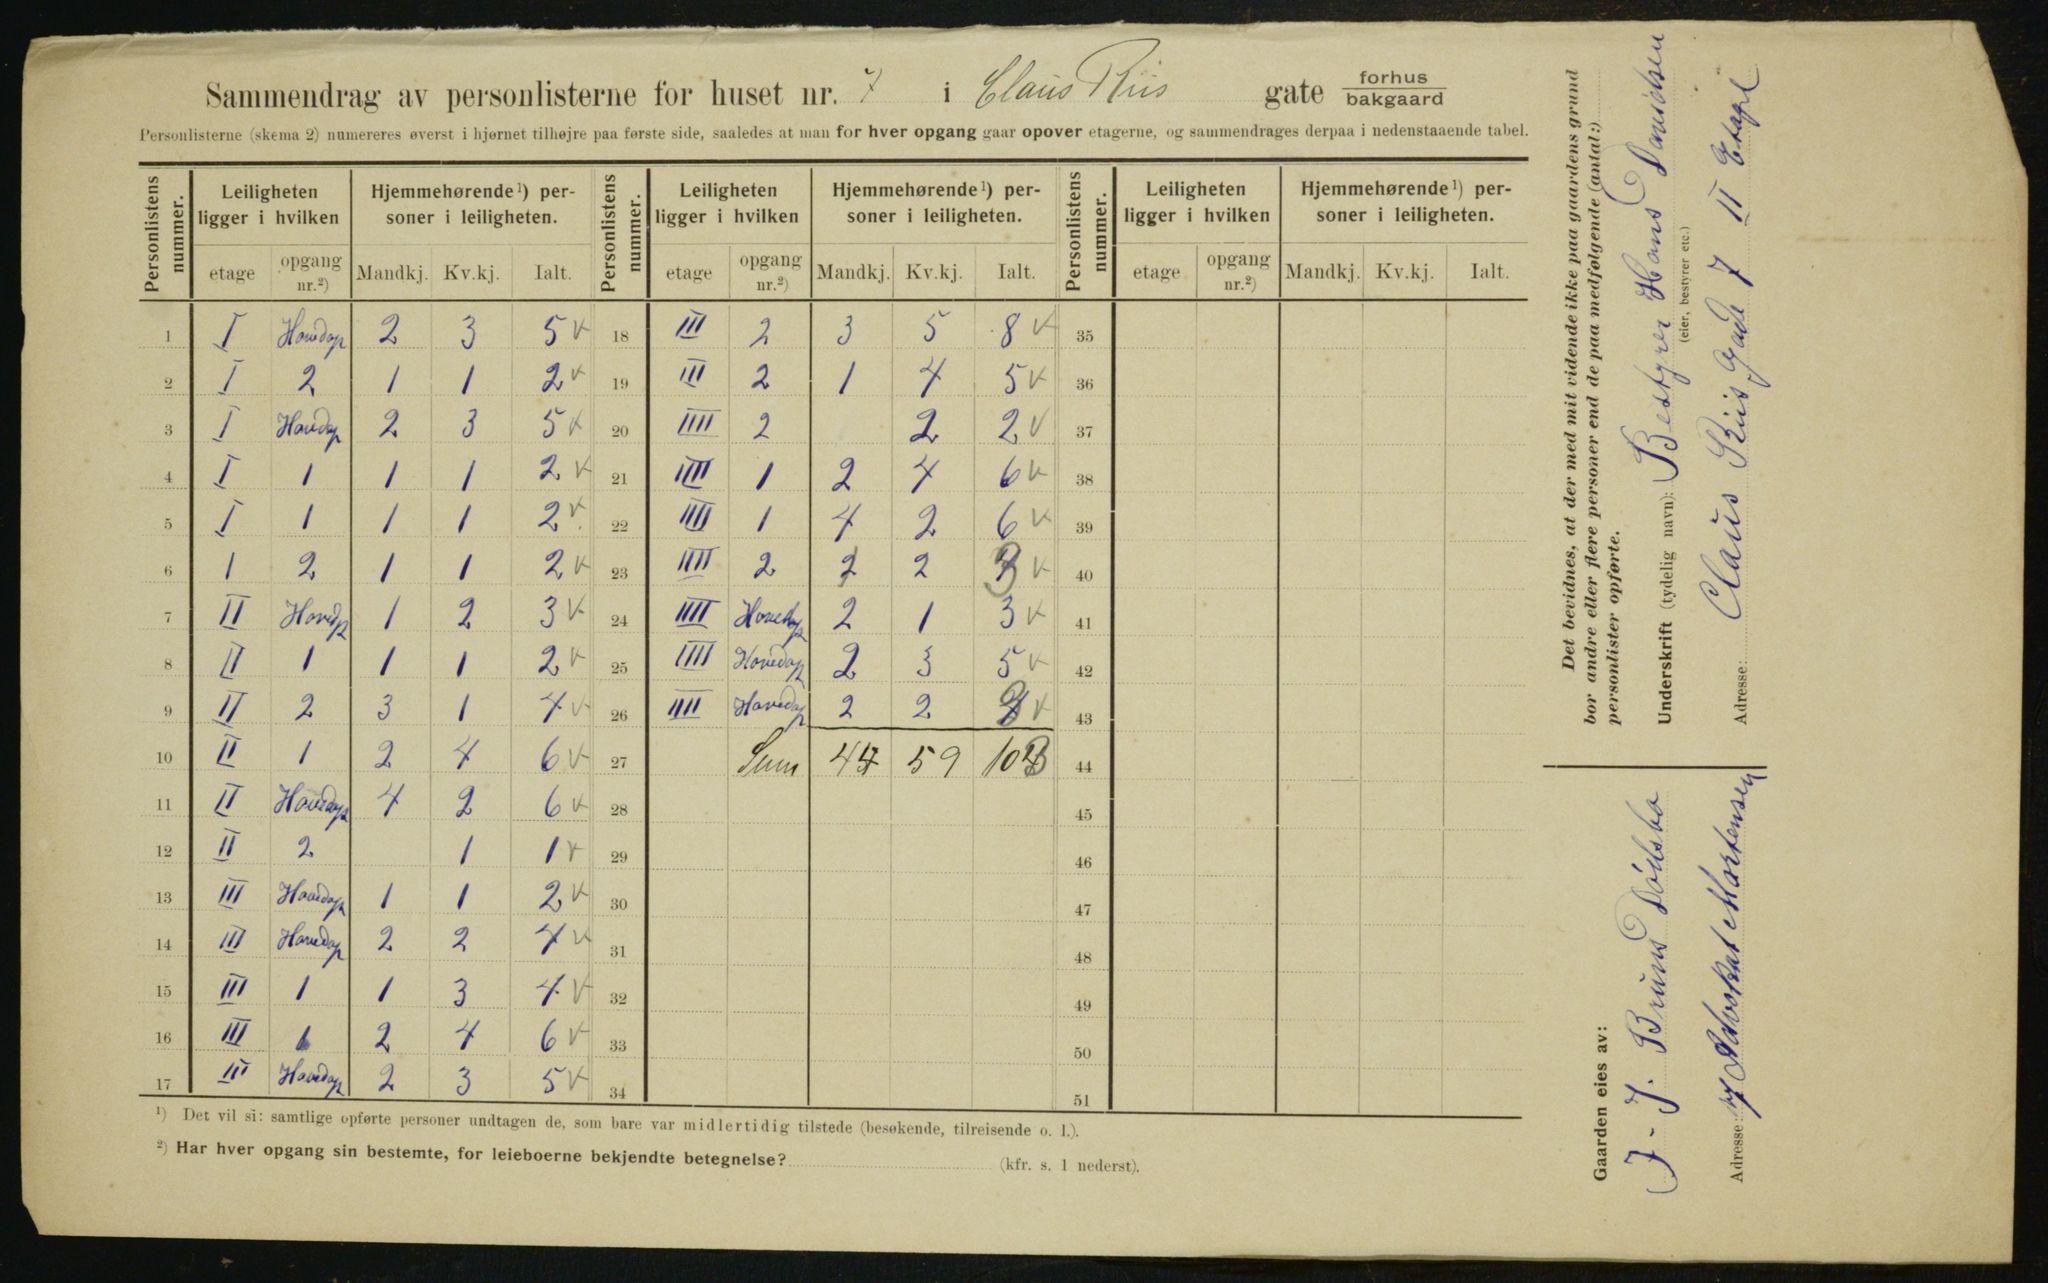 Sammendrag av personlisterne for huset nr. 7 i Claus Riis gate forhus bakgaard
Personlisterne (skema 2) numereres øverst i hjørnet tilhøjre paa første side, saaledes at man for hver opgang gaar opover etagerne, og sammendrages derpaa i nedenstaaende tabel.
Personlistens nummer. Leiligheten ligger i hvilken Hjemmehørende¹) personer i leiligheten. Personlistens nummer. Leiligheten ligger i hvilken Hjemmehørende¹) personer i leiligheten. Personlistens nummer. Leiligheten ligger i hvilken Hjemmehørende¹) personer i leiligheten.
etage opgang nr.²) Mandkj. Kv.kj. Ialt. etage opgang nr.²) Mandkj. Kv.kj. Ialt. etage opgang nr.²) Mandkj. Kv.kj. Ialt.
1 I Hovedop 2 3 5 v 18 III 2 3 5 8 v 35
2 I 2 1 1 2 v 19 III 2 1 4 5 v 36
3 I Hovedop 2 3 5 v 20 IIII 2 2 2 v 37
4 I 1 1 1 2 v 21 IIII 1 2 4 6 v 38
5 I 1 1 1 2 v 22 IIII 1 4 2 6 v 39
6 I 2 1 1 2 v 23 IIII 2 2 3 v 40
7 II Hovedop 1 2 3 v 24 IIII Hovedop 2 1 3 v 41
8 II 1 1 1 2 v 25 IIII Hovedop 2 3 5 v 42
9 II 2 3 1 4 v 26 IIII Hovedop 2 2 v 43
10 II 1 2 4 6 v 27 Sum 59 103 44
11 II Hovedop 4 2 6 v 28 45
12 II 2 1 1 v 29 46
13 III Hovedop 1 1 2 v 30 47
14 III Hovedop 2 2 4 v 31 48
15 III 1 1 3 4 v 32 49
16 III 1 2 4 6 v 33 50
17 III Hovedop 2 3 5 v 34 51
¹) Det vil si: samtlige opførte personer undtagen de, som bare var midlertidig tilstede (besøkende, tilreisende o. l.).
²) Har hver opgang sin bestemte, for leieboerne bekjendte betegnelse? (kfr. s. 1 nederst).
Det bevidnes, at der med mit vidende ikke paa gaardens grund
bor andre eller flere personer end de paa medfølgende (antal:)
personlister opførte.
Underskrift (tydelig navn): Bestyrer Hans Davidsen
(eier, bestyrer etc.)
Adresse: Claus Riis Gade 7 II Etage
Gaarden eies av:
J. J. Bruns Dödsbo
Adresse: v/ Advokat Mortensen